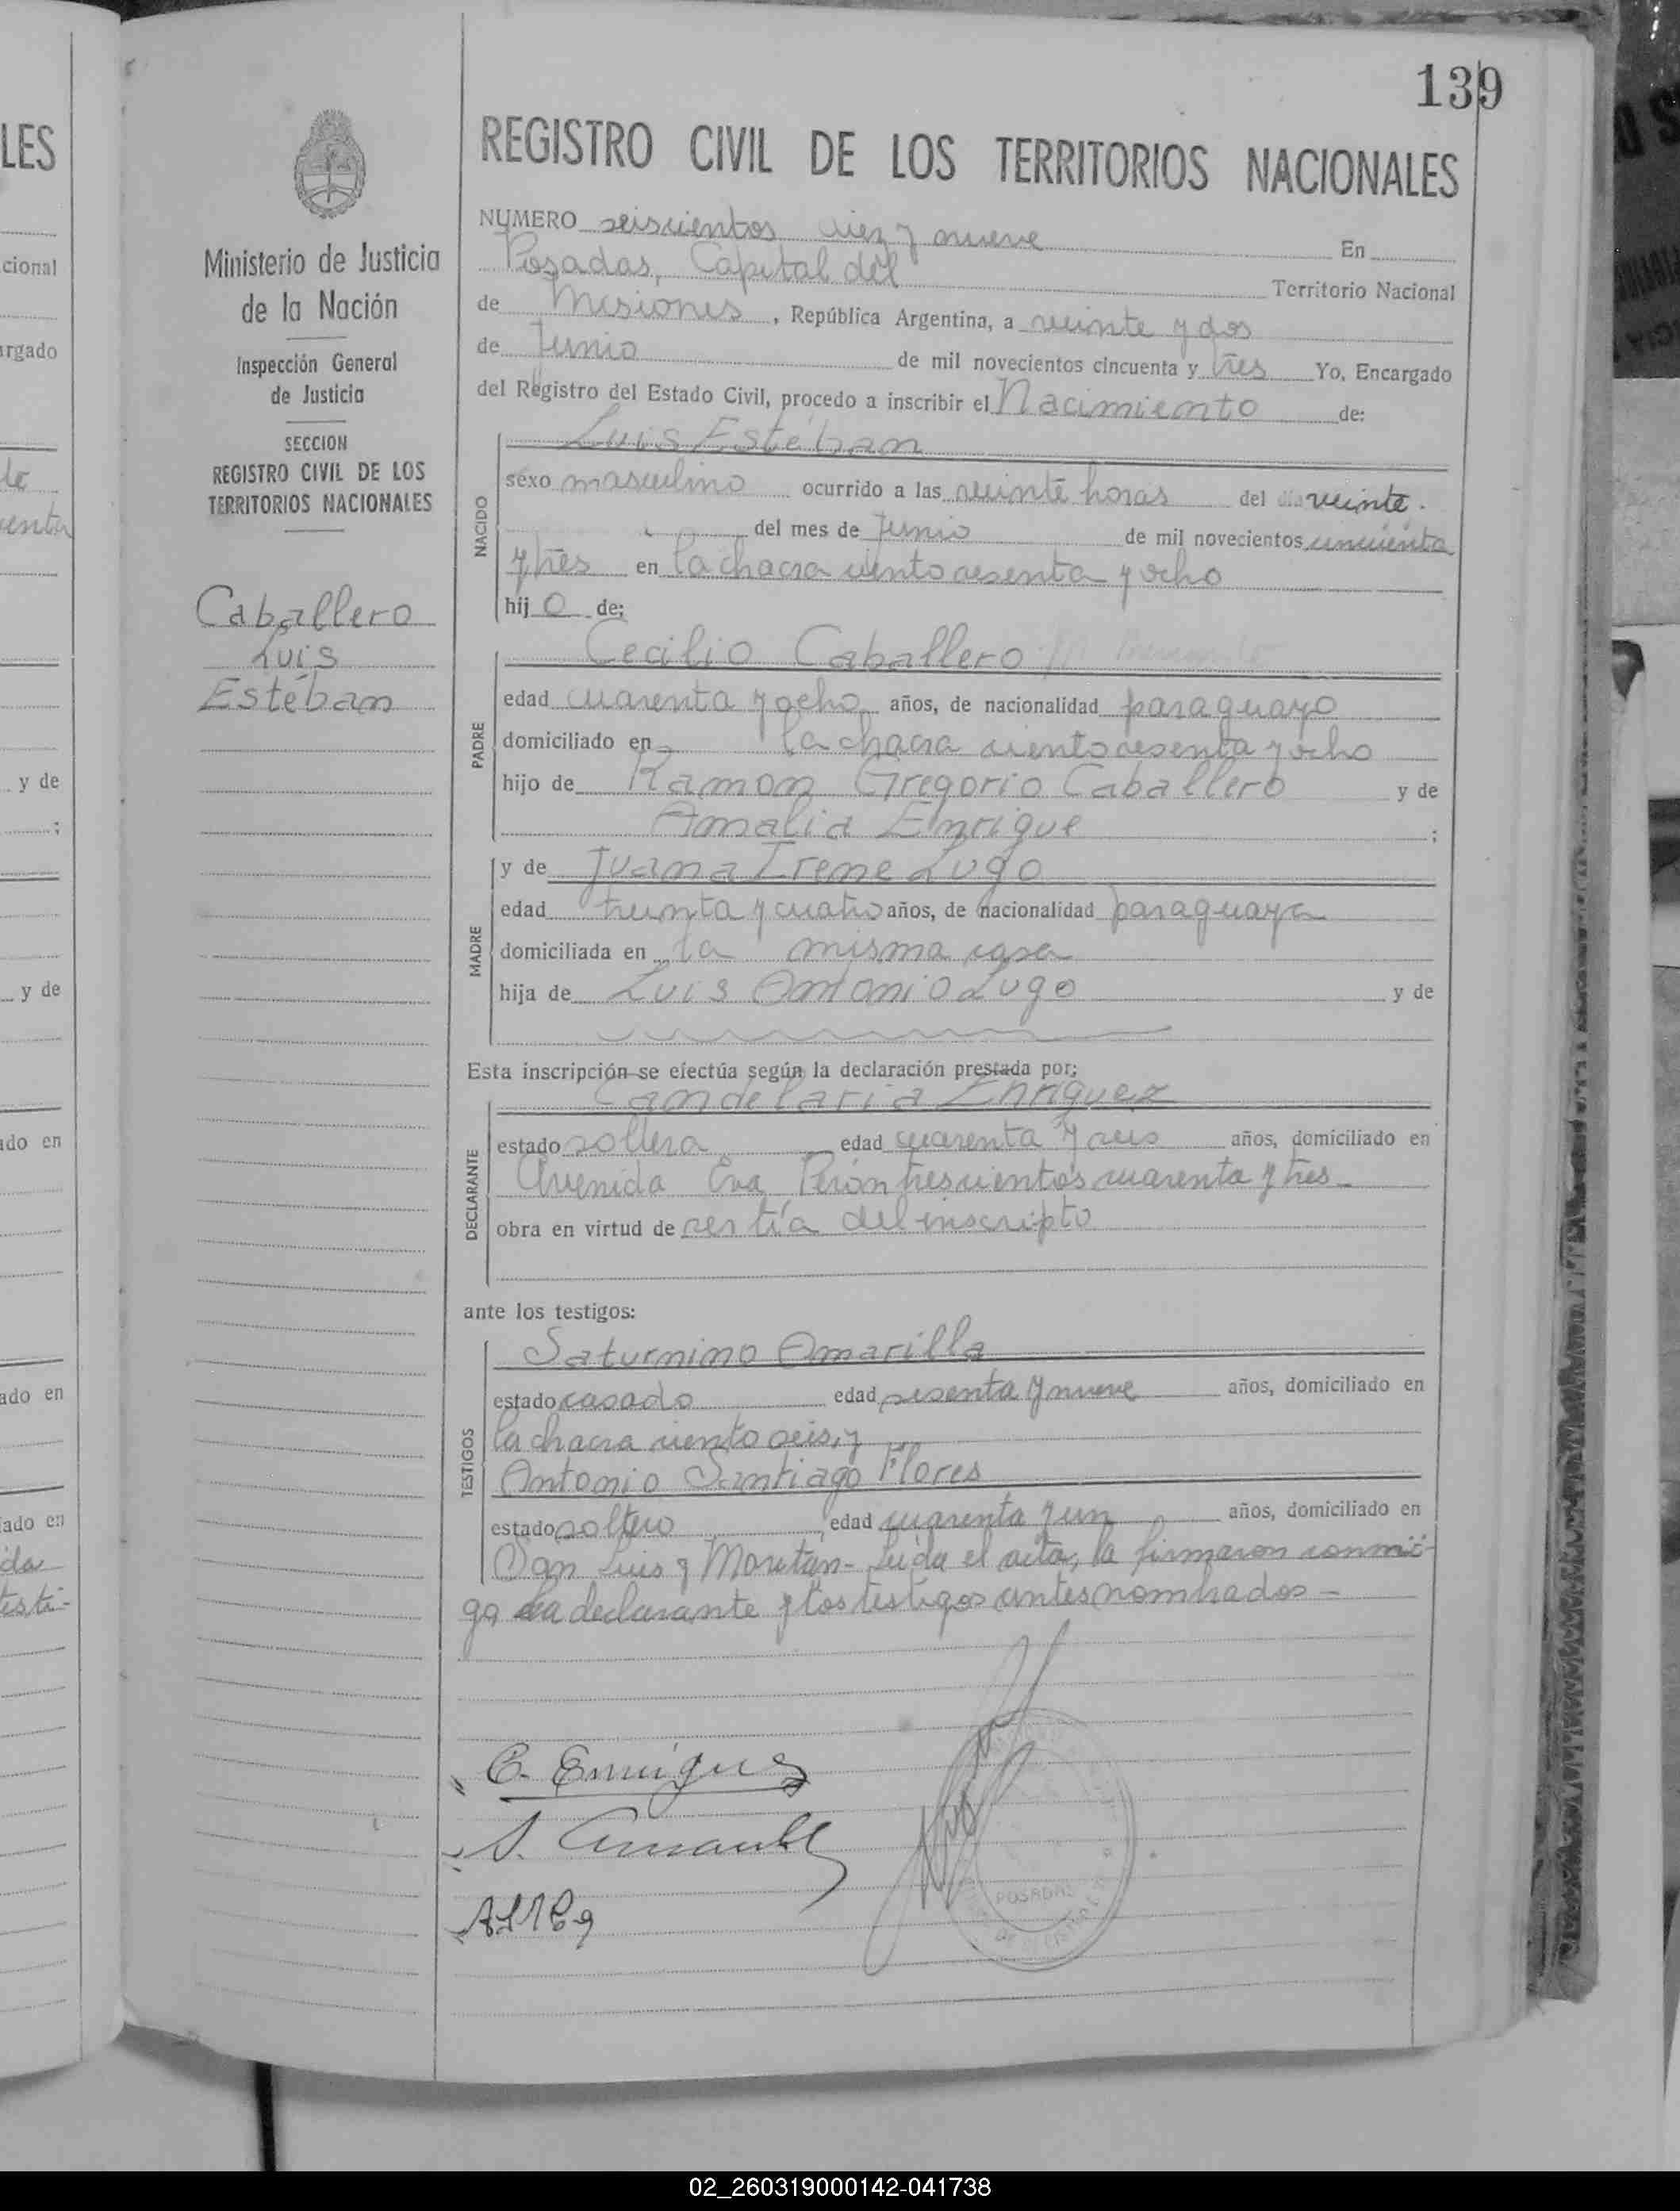 139
LES
cional
argado
te
y de
;
y de
ado en
ado en
ado en
da
testi-
Ministerio de Justicia
de la Nación
Inspección General
de Justicia
SECCION
REGISTRO CIVIL DE LOS
TERRITORIOS NACIONALES
Caballero
Luis
Estéban
REGISTRO CIVIL DE LOS TERRITORIOS NACIONALES
NUMERO seiscientos diez y nueve En
Posadas, Capital del Territorio Nacional
de Misiones, República Argentina, a veinte y dos
de Junio de mil novecientos cincuenta y tres Yo, Encargado
del Registro del Estado Civil, procedo a inscribir el Nacimiento de:
NACIDO
Luis Estéban
sexo masculino ocurrido a las veinte horas del dia veinte.
del mes de Junio de mil novecientos cincuenta
y tres en la chacra ciento sesenta y ocho
hijo de:
PADRE
Cecilio Caballero
edad cuarenta y ocho años, de nacionalidad paraguayo
domiciliado en la chacra ciento sesenta y ocho
hijo de Ramon Gregorio Caballero y de
Amalia Enrique ;
MADRE
y de Juana Irene Lugo
edad treinta y cuatro años, de nacionalidad paraguaya
domiciliada en la misma casa
hija de Luis Antonio Lugo y de
Esta inscripción se efectúa según la declaración prestada por:
DECLARANTE
Candelaria Enriquez
estado soltera edad cuarenta y seis años, domiciliado en
Avenida Eva Perón trescientos cuarenta y tres-
obra en virtud de ser tía del inscripto
ante los testigos:
TESTIGOS
Saturnino Amarilla
estado casado edad sesenta y nueve años, domiciliado en
la chacra ciento seis, y
Antonio Santiago Flores
estado soltero edad cuarenta y un años, domiciliado en
San Luis y Moritán- Leida el acta, la firmaron conmi-
go la declarante y los testigos antes nombrados-
C. Enrigues
POSADAS
02_260319000142-041738